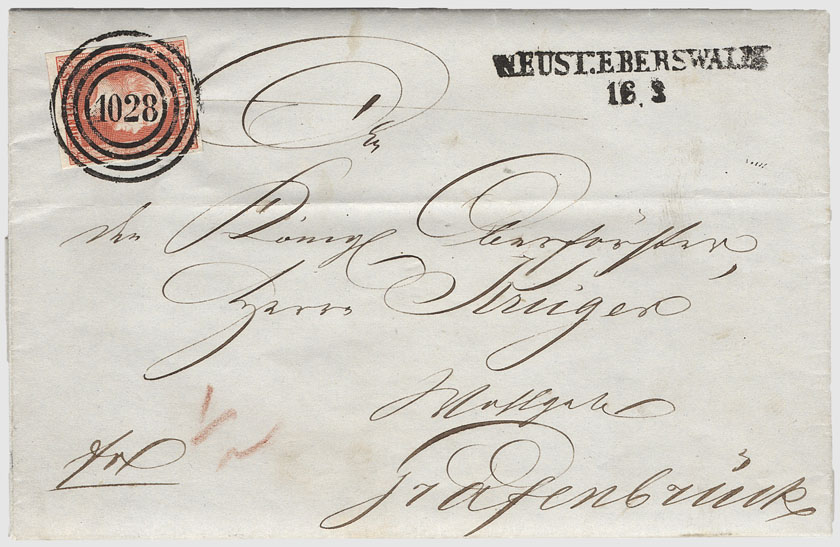 1028
NEUST.EBERSWALDE
16.3
An
den Königl Oberförster,
Herrn Krüger
Wohlgeb
frei
Grafenbrück